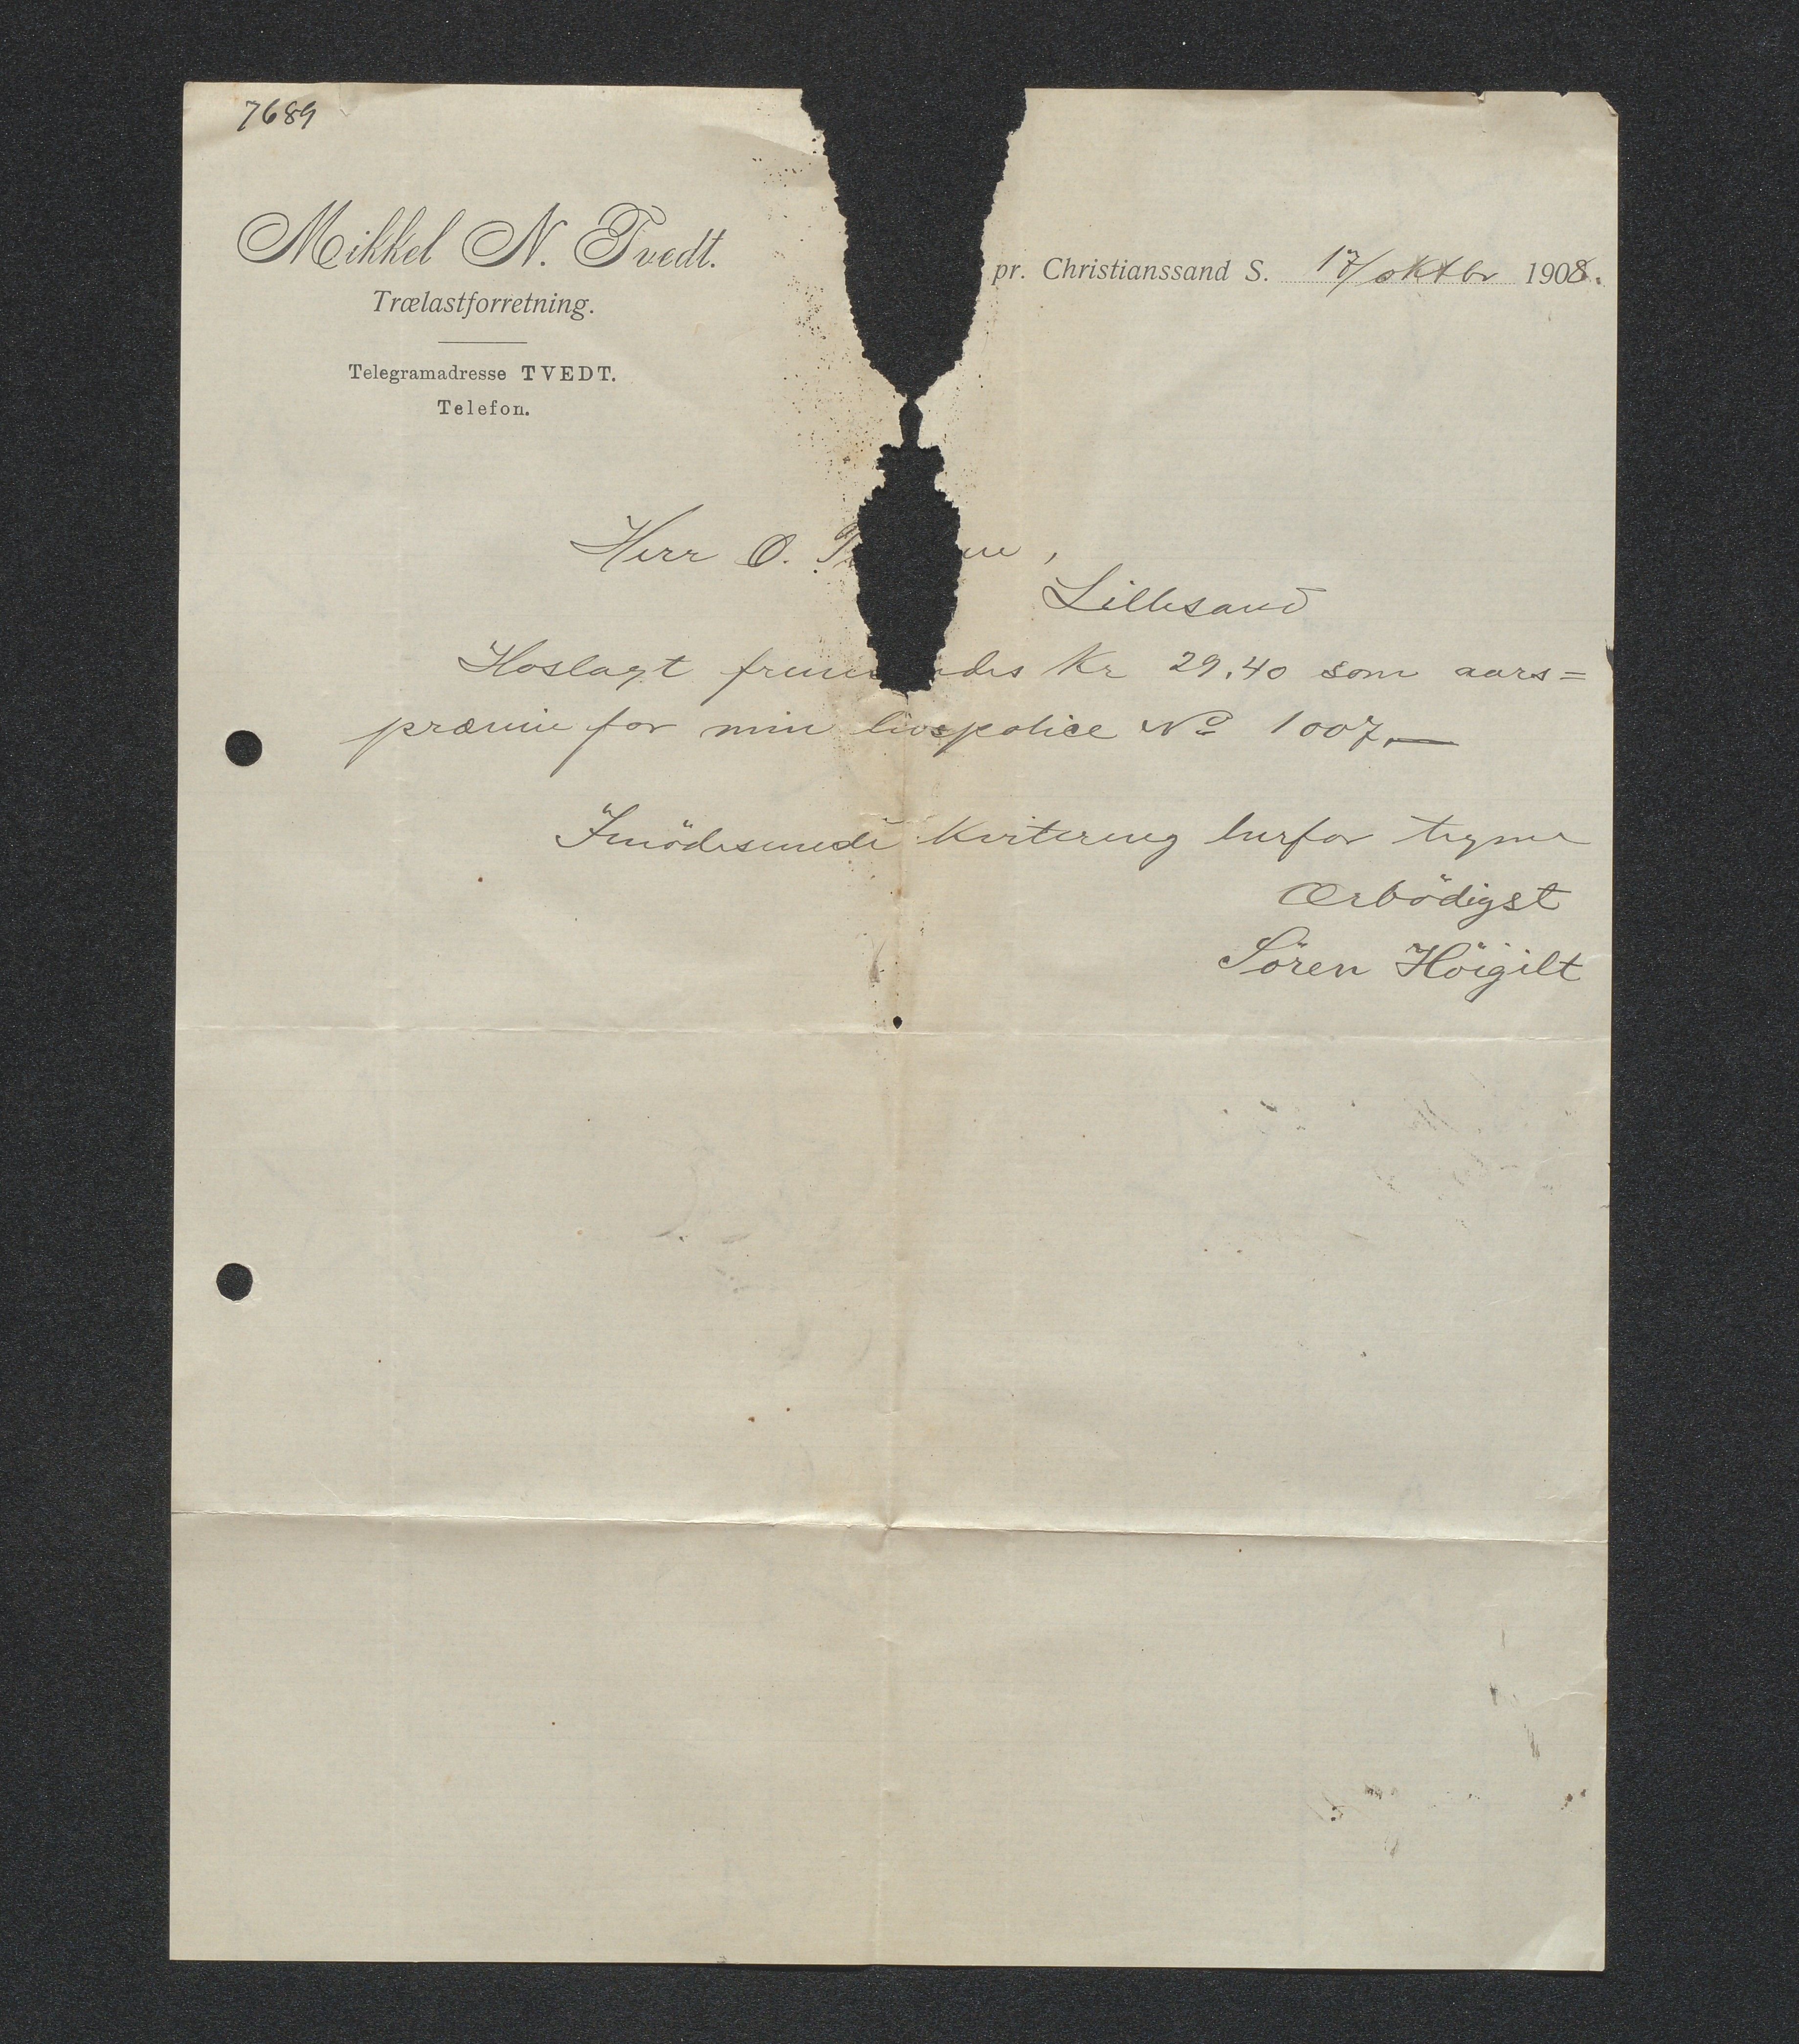 7689
Mikkel N. Tvedt.
Trælastforretning.
Telegramadresse TVEDT.
Telefon.
pr. Christianssand S. 17/oktbr 1908.
Herr O.
Lillesand
Hoslagt Kr 29.40 som aars=
præmie for min livspolice No 1007.—
Imödeseende kvittering herfor tegner
Ærbödigst
Sören Höigilt